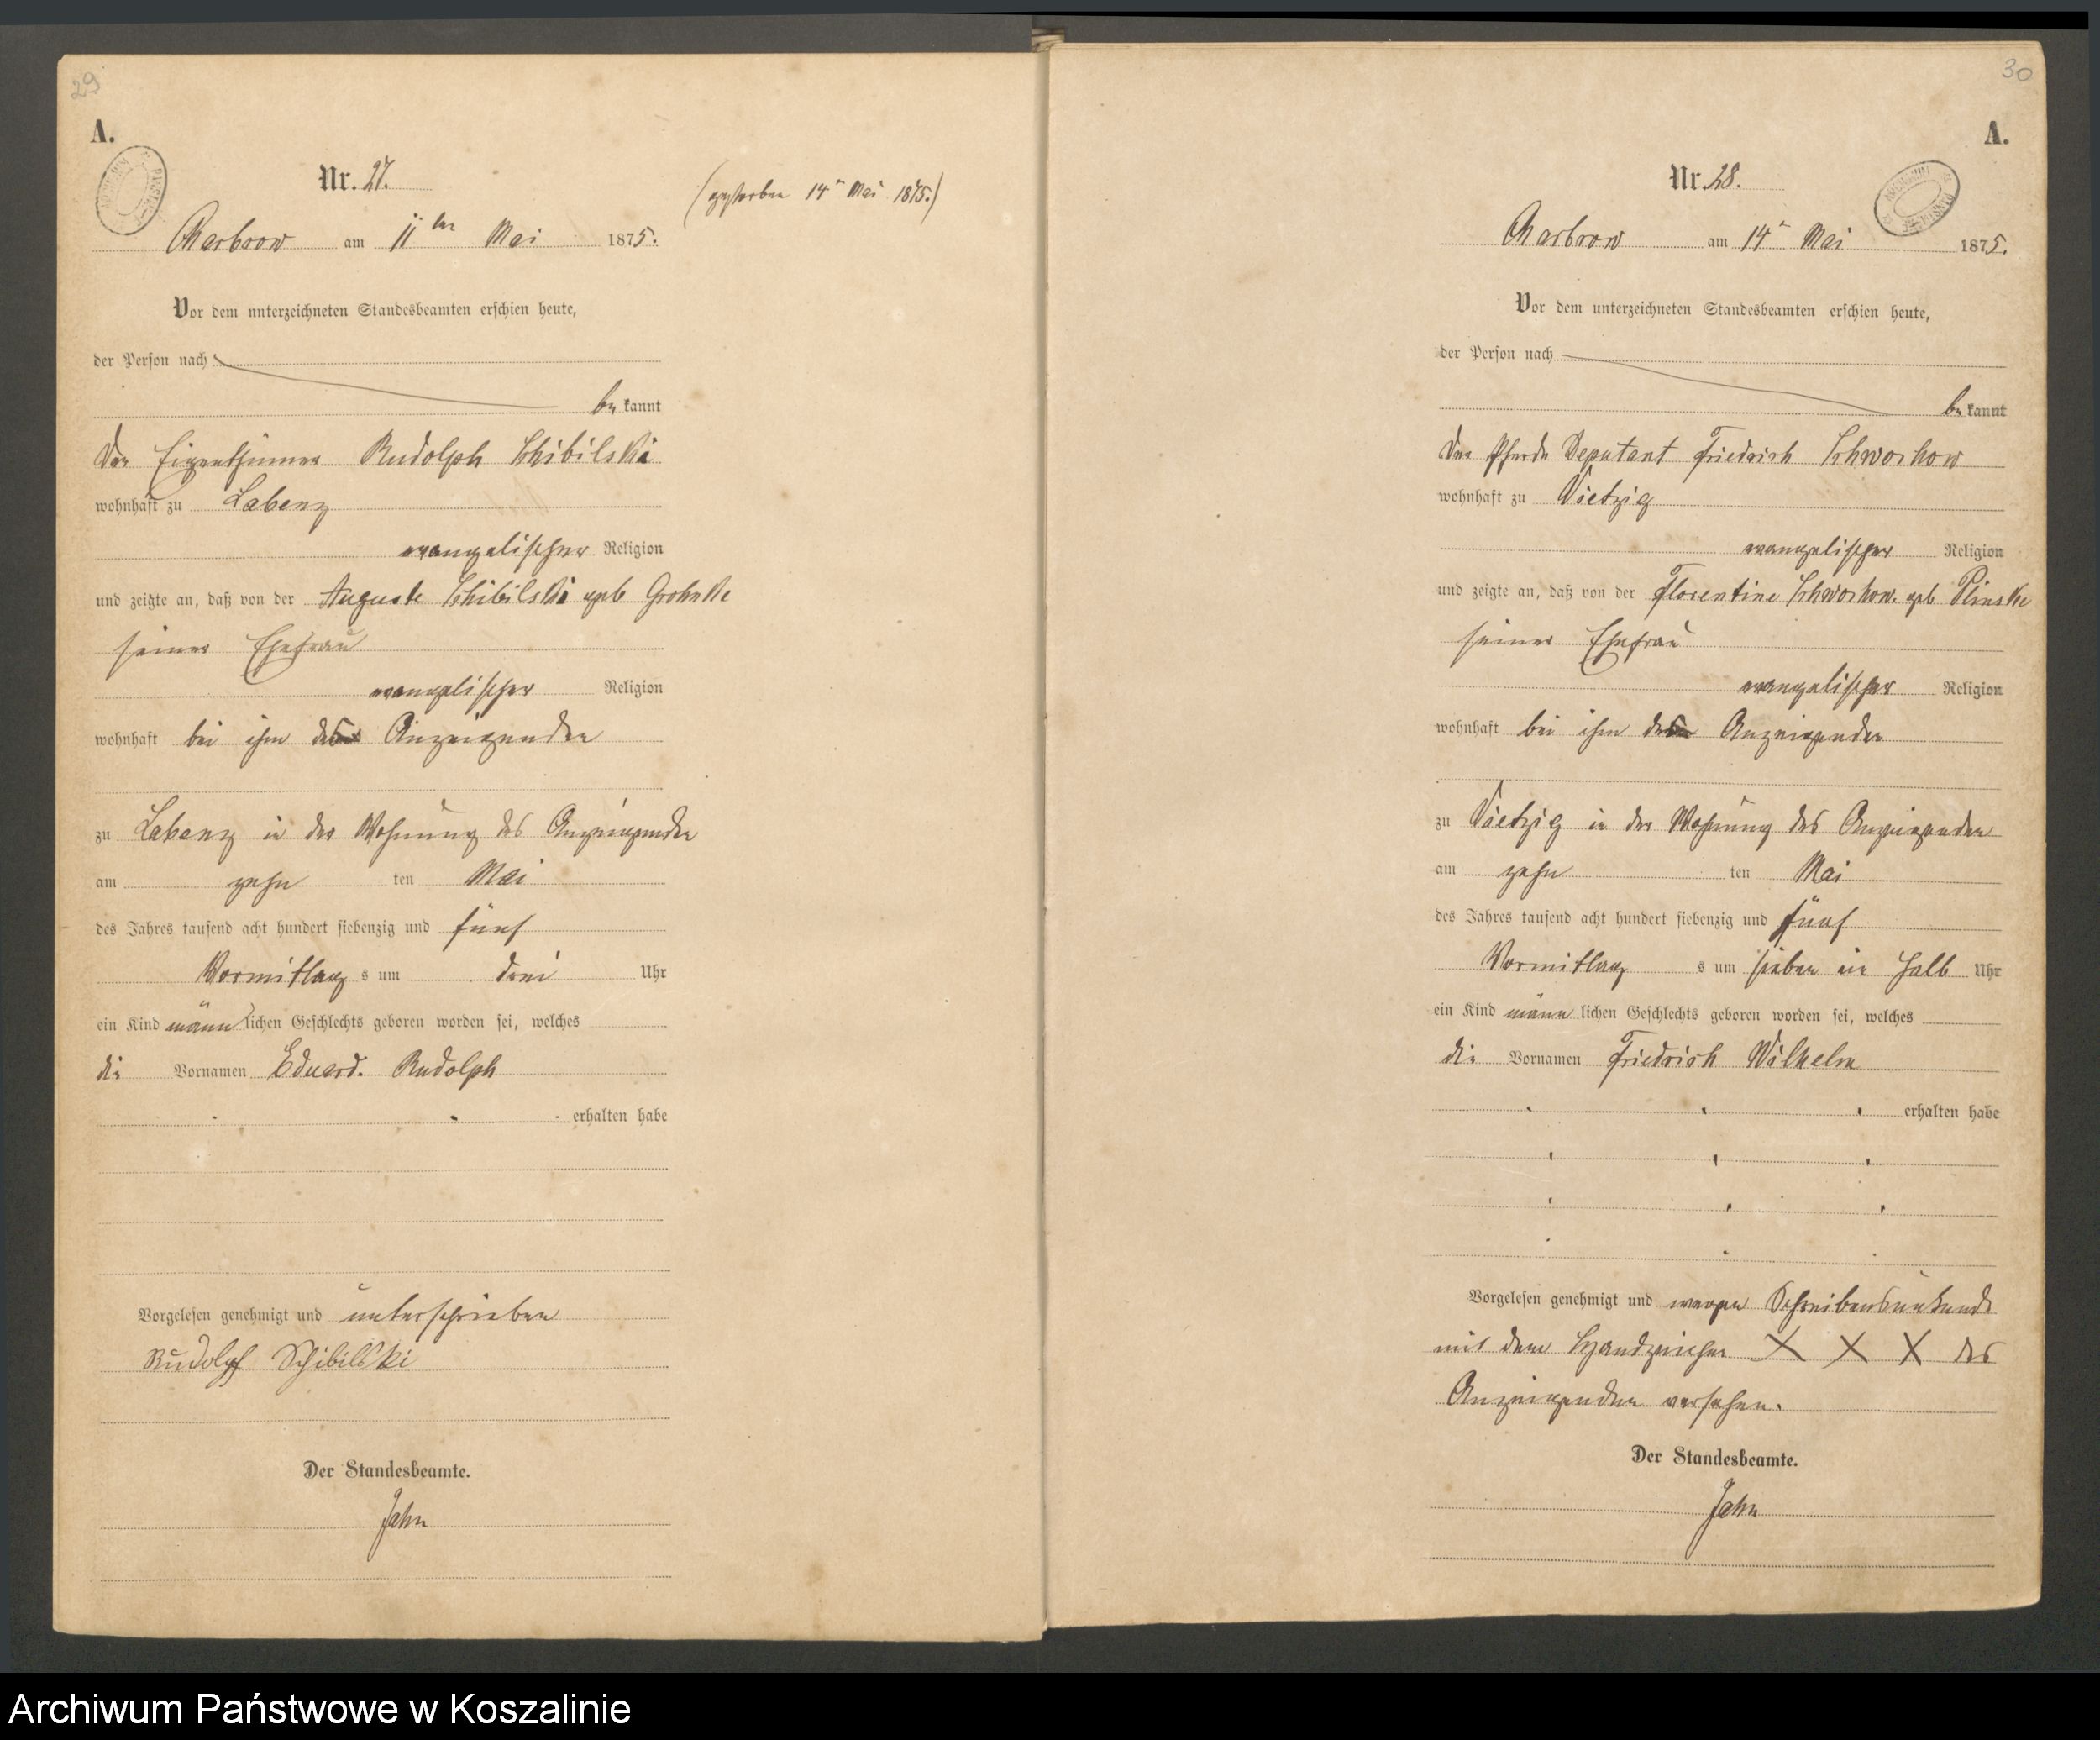 29
A.
Nr. 27.
(gestorben 14ⁿ Mai 1875.)
Charbrow am 11ten Mai 1875.
Vor dem unterzeichneten Standesbeamten erschien heute,
der Person nach
be kannt
Der Eigenthümer Rudolph Schibilski
wohnhaft zu Labenz
evangelischer Religion
und zeigte an, daß von der Auguste Schibilski geb Grohnke
seiner Ehefrau
evangelischer Religion
wohnhaft bei ihm dem Anzeigenden
zu Labenz in der Wohnung des Anzeigenden
am zehn ten Mai
des Jahres tausend acht hundert siebenzig und fünf
Vormittag s um drei Uhr
ein Kind männ lichen Geschlechts geboren worden sei, welches
die Vornamen Eduard. Rudolph
erhalten habe
Vorgelesen genehmigt und unterschrieben
Rudolph Schibilski
Der Standesbeamte.
Jahn
30
A.
Nr. 28.
Charbrow am 14ⁿ Mai 1875.
Vor dem unterzeichneten Standesbeamten erschien heute,
der Person nach
be kannt
Der Pferde Deputant Friedrich Schwochow
wohnhaft zu Vietzig
evangelischer Religion
und zeigte an, daß von der Florentine Schwochow. geb Plinske
seiner Ehefrau
evangelischer Religion
wohnhaft bei ihm dem Anzeigenden
zu Vietzig in der Wohnung des Anzeigenden
am zehn ten Mai
des Jahres tausend acht hundert siebenzig und fünf
Vormittag s um sieben ein halb Uhr
ein Kind männ lichen Geschlechts geboren worden sei, welches
die Vornamen Friedrich Wilhelm
erhalten habe
Vorgelesen genehmigt und wegen Schreibensunkunde
mit dem Handzeichen X X X des
Anzeigenden versehen.
Der Standesbeamte.
Jahn
Archiwum Państwowe w Koszalinie